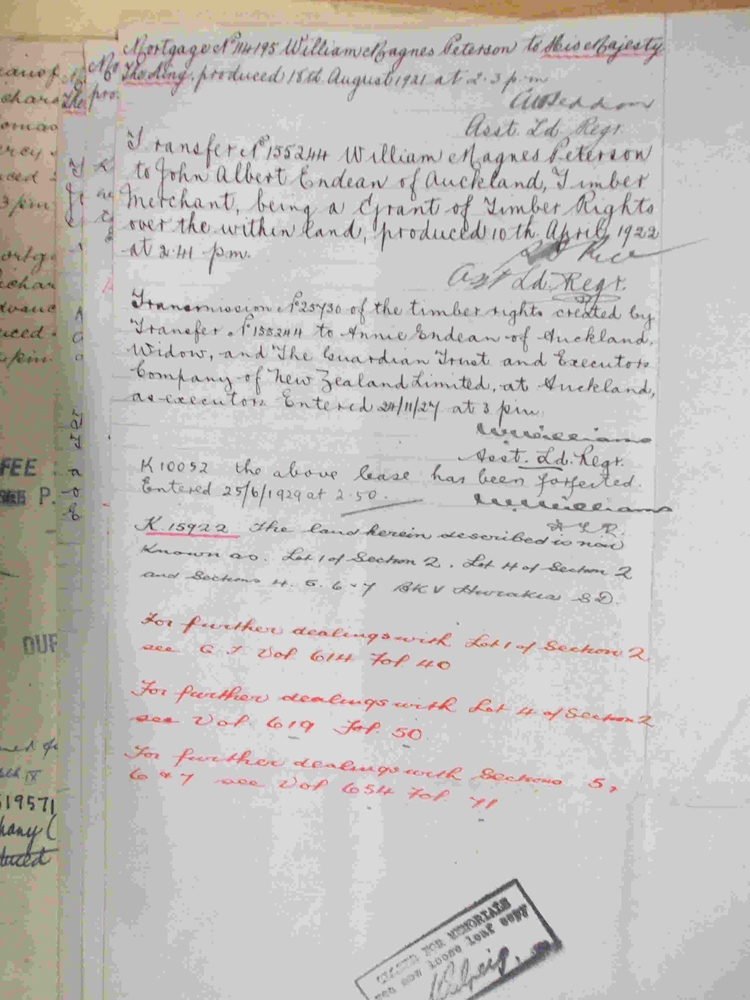 Mortgage No 114195 William Magnes Peterson to His Majesty
The King. produced 18th August 1921 at 2.3 p.m
Asst. Ld. Regr.
Transfer No 155244 William Magnes Peterson
to John Albert Endean of Auckland, Timber
Merchant, being a Grant of Timber Rights
over the within land, produced 10th April 1922
at 2.41 p.m.
Asst Ld. Regr.
Transmission No 25730 of the timber rights created by
Transfer No 155244 to Annie Endean of Auckland,
Widow, and The Guardian Trust and Executors
Company of New Zealand Limited, at Auckland,
as executors Entered 24/11/27 at 3 p.m.
W Williams
Asst. Ld. Regr.
K 10052 the above lease has been forfeited.
Entered 25/6/1929 at 2.50.
W Williams
A.L.R.
K 15922 The land herein described is now
known as Lot 1 of Section 2, Lot 4 of Section 2
and Sections 4. 5. 6 & 7 BK V Hurakia S.D.
For further dealings with Lot 1 of Section 2
see C.T. Vol 614 Fol 40
For further dealings with Lot 4 of Section 2
see Vol 619 Fol 50
For further dealings with Sections 5,
6 & 7 see Vol 654 Fol 71
CLOSED FOR MEMORIALS
see new loose leaf copy
FEE
P.
DUP
519571